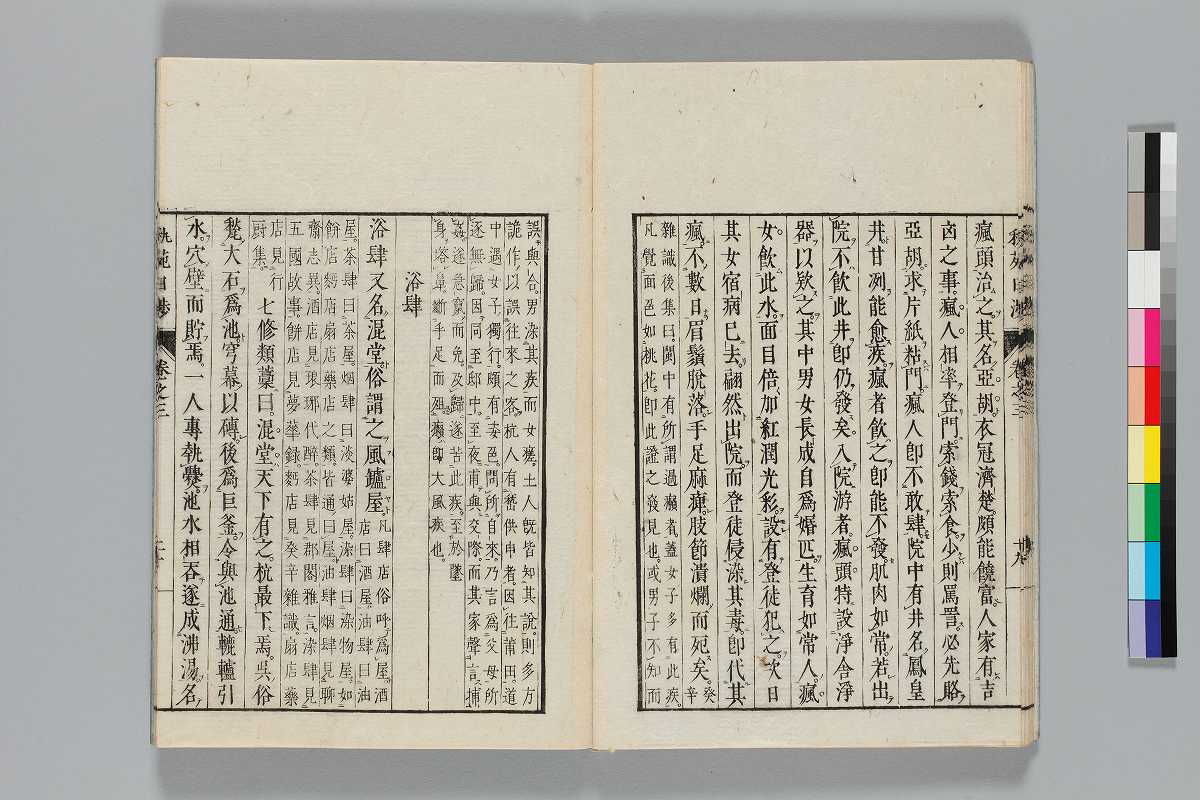 瘋頭治之其名亞胡衣冠濟楚頗能饒富人家有吉
凶之事瘋人相率登門索錢索食少則罵詈必先賂
亞胡求片紙粘門瘋人即不敢肆院中有井名鳳皇
井甘冽能愈疾瘋者飲之即能不發肌肉如常若出
院不飲此井即仍發矣入院游者瘋頭特設淨舍淨
器以欵之其中男女長成自爲婚匹生育如常人瘋
女飲此水面目倍加紅潤光彩設有登徒犯之次日
其女宿病已去翩然出院而登徒侵染其毒即代其
瘋不數日眉鬚脫落手足麻痺肢節潰爛而死矣癸辛
雜識後集曰閩中有所謂過癩者蓋女子多有此疾
凡覺面色如桃花即此證之發見也或男子不知而
卷之三
十九
誤與合男染其疾而女瘥土人既皆知其說則多方
詭作以誤往來之客杭人有嵇供申者因往莆田道
中遇女子獨行頗有姿色問所自來乃言爲父母所
逐無歸因同至邸中至夜甫與交際而其家聲言捕
姦遂急竄而免及歸遂苦此疾至於墜
身塔鼻斷手足而殂癩即大風疾也
浴肆
浴肆又名混堂俗謂之風鑪屋凡肆店俗呼爲屋酒
店曰酒屋油肆曰油
屋茶肆曰茶屋烟肆曰淡婆姑屋染肆曰染物屋如
餅店麪店扇店藥店之類皆通曰屋油肆烟肆見聊
齋志異酒店見瑯琊代醉茶肆見郡閣雅言染肆見
五國故事餅店見夢華錄麪店見癸辛雜識扇店藥
店見行
厨集
七修類藁曰混堂天下有之杭最下焉吳俗
甃大石爲池穹幕以磚後爲巨釜令與池通轆轤引
水穴壁而貯焉一人專執爨池水相吞遂成沸湯名
秇苑日渉
卷之三
二十